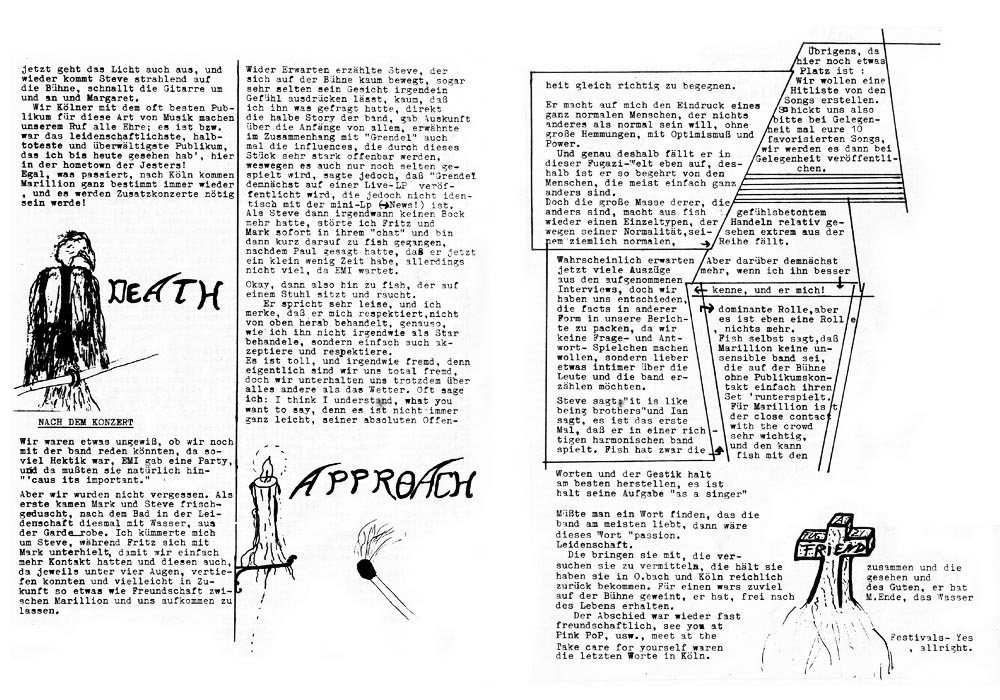 jetzt geht das Licht auch aus, und
wieder kommt Steve strahlend auf
die Bühne, schnallt die Gitarre um
und an und Margaret.
Wir Kölner mit dem oft besten Pub-
likum für diese Art von Musik machen
unserem Ruf alle Ehre; es ist bzw.
war das leidenschaftlichste, halb-
toteste und überwältigste Publikum,
das ich bis heute gesehen hab', hier
in der hometown der Jesters!
Egal, was passiert, nach Köln kommen
Marillion ganz bestimmt immer wieder
, und es werden Zusatzkonzerte nötig
sein werde!
DEATH
NACH DEM KONZERT
Wir waren etwas ungewiß, ob wir noch
mit der band reden könnten, da so-
viel Hektik war, EMI gab eine Party,
und da mußten sie natürlich hin-
"'caus its important."
Aber wir wurden nicht vergessen. Als
erste kamen Mark und Steve frisch-
geduscht, nach dem Bad in der Lei-
denschaft diesmal mit Wasser, aus
der Garde robe. Ich kümmerte mich
um Steve, während Fritz sich mit
Mark unterhielt, damit wir einfach
mehr Kontakt hatten und diesen auch,
da jeweils unter vier Augen, vertie-
fen konnten und vielleicht in Zu-
kunft so etwas wie Freundschaft zwi-
schen Marillion und uns aufkommen zu
lassen.
Wider Erwarten erzählte Steve, der
sich auf der Bühne kaum bewegt, sogar
sehr selten sein Gesicht irgendein
Gefühl ausdrücken lässt, kaum, daß
ich ihn was gefragt hatte, direkt
die halbe Story der band, gab Auskunft
über die Anfänge von allem, erwähnte
im Zusammenhang mit "Grendel" auch
mal die influences, die durch dieses
Stück sehr stark offenbar werden,
weswegen es auch nur noch selten ge-
spielt wird, sagte jedoch, daß "Grendel
demnächst auf einer Live-LP veröf-
fentlicht wird, die jedoch nicht iden-
tisch mit der mini-Lp (→News!) ist.
Als Steve dann irgendwann keinen Bock
mehr hatte, störte ich Fritz und
Mark sofort in ihrem "chat" und bin
dann kurz darauf zu fish gegangen,
nachdem Paul gesagt hatte, daß er jetzt
ein klein wenig Zeit habe, allerdings
nicht viel, da EMI wartet.
Okay, dann also hin zu fish, der auf
einem Stuhl sitzt und raucht.
Er spricht sehr leise, und ich
merke, daß er mich respektiert,nicht
von oben herab behandelt, genauso,
wie ich ihn nicht irgendwie als Star
behandele, sondern einfach auch ak-
zeptiere und respektiere.
Es ist toll, und irgendwie fremd, denn
eigentlich sind wir uns total fremd,
doch wir unterhalten uns trotzdem über
alles andere als das Wetter. Oft sage
ich: I think I understand, what you
want to say, denn es ist nicht immer
ganz leicht, seiner absoluten Offen-
APPROACH
heit gleich richtig zu begegnen.
Er macht auf mich den Eindruck eines
ganz normalen Menschen, der nichts
anderes als normal sein will, ohne
große Hemmungen, mit Optimismuß und
Power.
Und genau deshalb fällt er in
dieser Fugazi-Welt eben auf, des-
halb ist er so begehrt von den
Menschen, die meist einfach ganz
anders sind.
Doch die große Masse derer, die
anders sind, macht aus fish
wieder einen Einzeltypen, der
wegen seiner Normalität,sei-
nem ziemlich normalen,
gefühlsbetontem
Handeln relativ ge-
sehen extrem aus der
Reihe fällt.
Übrigens, da
hier noch etwas
Platz ist :
Wir wollen eine
Hitliste von den
Songs erstellen.
Schickt uns also
bitte bei Gelegen-
heit mal eure 10
favorisierten Songs,
wir werden es dann bei
Gelegenheit veröffentli-
chen.
Wahrscheinlich erwarten
jetzt viele Auszüge
aus den aufgenommenen
Interviews, doch wir
haben uns entschieden,
die facts in anderer
Form in unsere Berich-
te zu packen, da wir
keine Frage- und Ant-
wort- Spielchen machen
wollen, sondern lieber
etwas intimer über die
Leute und die band er-
zählen möchten.
Steve sagt:"it is like
being brothers"und Ian
sagt, es ist das erste
Mal, daß er in einer rich-
tigen harmonischen band
spielt. Fish hat zwar die
Aber darüber demnächst
mehr, wenn ich ihn besser
kenne, und er mich!
dominante Rolle,aber
es ist eben eine Roll e
, nichts mehr.
Fish selbst sagt,daß
Marillion keine un-
sensible band sei,
die auf der Bühne
ohne Publikumskon-
takt einfach ihren
Set 'runterspielt.
Für Marillion ist
der close contact
with the crowd
sehr wichtig,
und den kann
fish mit den
Worten und der Gestik halt
am besten herstellen, es ist
halt seine Aufgabe "as a singer"
Müßte man ein Wort finden, das die
band am meisten liebt, dann wäre
dieses Wort "passion.
Leidenschaft.
Die bringen sie mit, die ver-
suchen sie zu vermitteln, die hält sie
haben sie in O.bach und Köln reichlich
zurück bekommen. Für einen wars zuviel
auf der Bühne geweint, er hat, frei nach
des Lebens erhalten.
Der Abschied war wieder fast
freundschaftlich, see you at
Pink PoP, usw., meet at the
Take care for yourself waren
die letzten Worte in Köln.
FRIEND
zusammen und die
gesehen und
des Guten, er hat
M.Ende, das Wasser
Festivals- Yes
, allright.